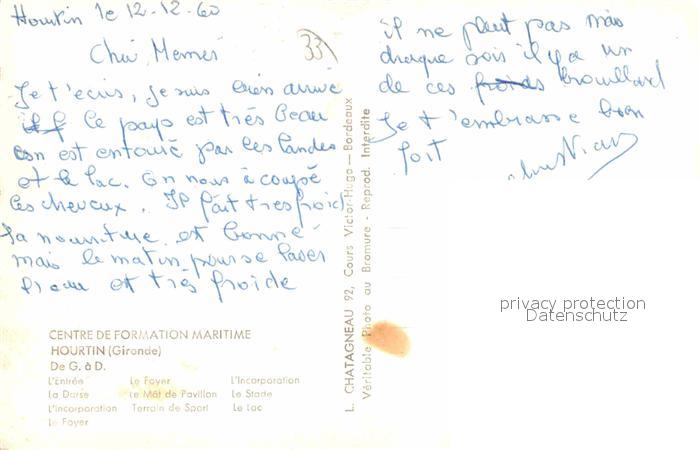 Hourtin le 12-12-60
33
Chui Memei
Je t'ecris, je suis bien arrivé
le pays est très beau
on est entouré par les landes
et le lac. On nous à coupé
les cheveux. Il fait tres froid
la nourriture est bonne
mais le matin pour se laver
l'eau et très froide
il ne pleut pas mais
chaque soir il y a un
de ces froids brouillard
Je t'embrasse bien
fort
CENTRE DE FORMATION MARITIME
HOURTIN (Gironde)
De G. à D.
L'Entrée Le Foyer L'Incorporation
La Darse Le Mât de Pavillon Le Stade
L'Incorporation Terrain de Sport Le Lac
Le Foyer
L. CHATAGNEAU 92, Cours Victor-Hugo — Bordeaux
Véritable Photo au Bromure - Reprod. Interdite
privacy protection
Datenschutz